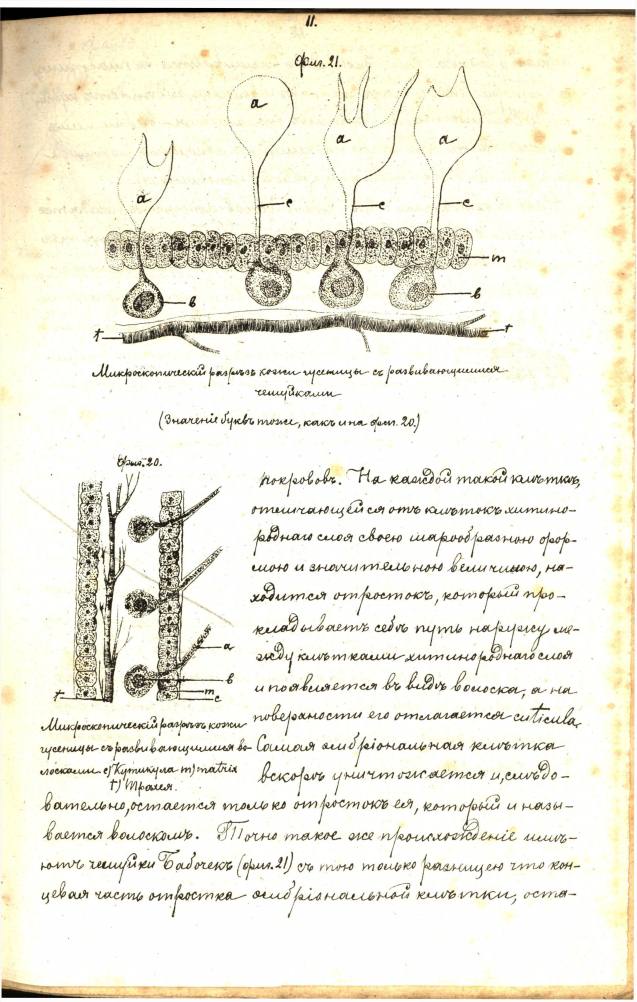 11.
Фиг. 21.
a
a
a
a
c
c
c
m
в
в
t
t
Микроскопическій разрѣзъ кожи гусеницы съ развивающимися
чешуйками
(Значеніе буквъ тоже, какъ и на фиг. 20.)
Фиг. 20.
a
в
m
t
c
Микроскопическій разрѣзъ кожи
гусеницы съ развивающимися во-
лосками c) Кутикула m) matrix
t) Трахея.
покрововъ. На каждой такой клѣткѣ,
отличающейся отъ клѣтокъ хитино-
роднаго слоя своею шарообразною фор-
мою и значительною величиною, на-
ходится отростокъ, который про-
кладываетъ себѣ путь наружу ме-
жду клѣтками хитинороднаго слоя
и появляется въ видѣ волоска, а на
поверхности его отлагается cuticula.
Самая эмбріональная клѣтка
вскорѣ уничтожается и, слѣдо-
вательно, остается только отростокъ ея, который и назы-
вается волоскомъ. Точно такое же происхожденіе имѣ-
ютъ чешуйки Бабочекъ (фиг. 21) съ тою только разницею что кон-
цевая часть отростка эмбріональной клѣтки, оста-